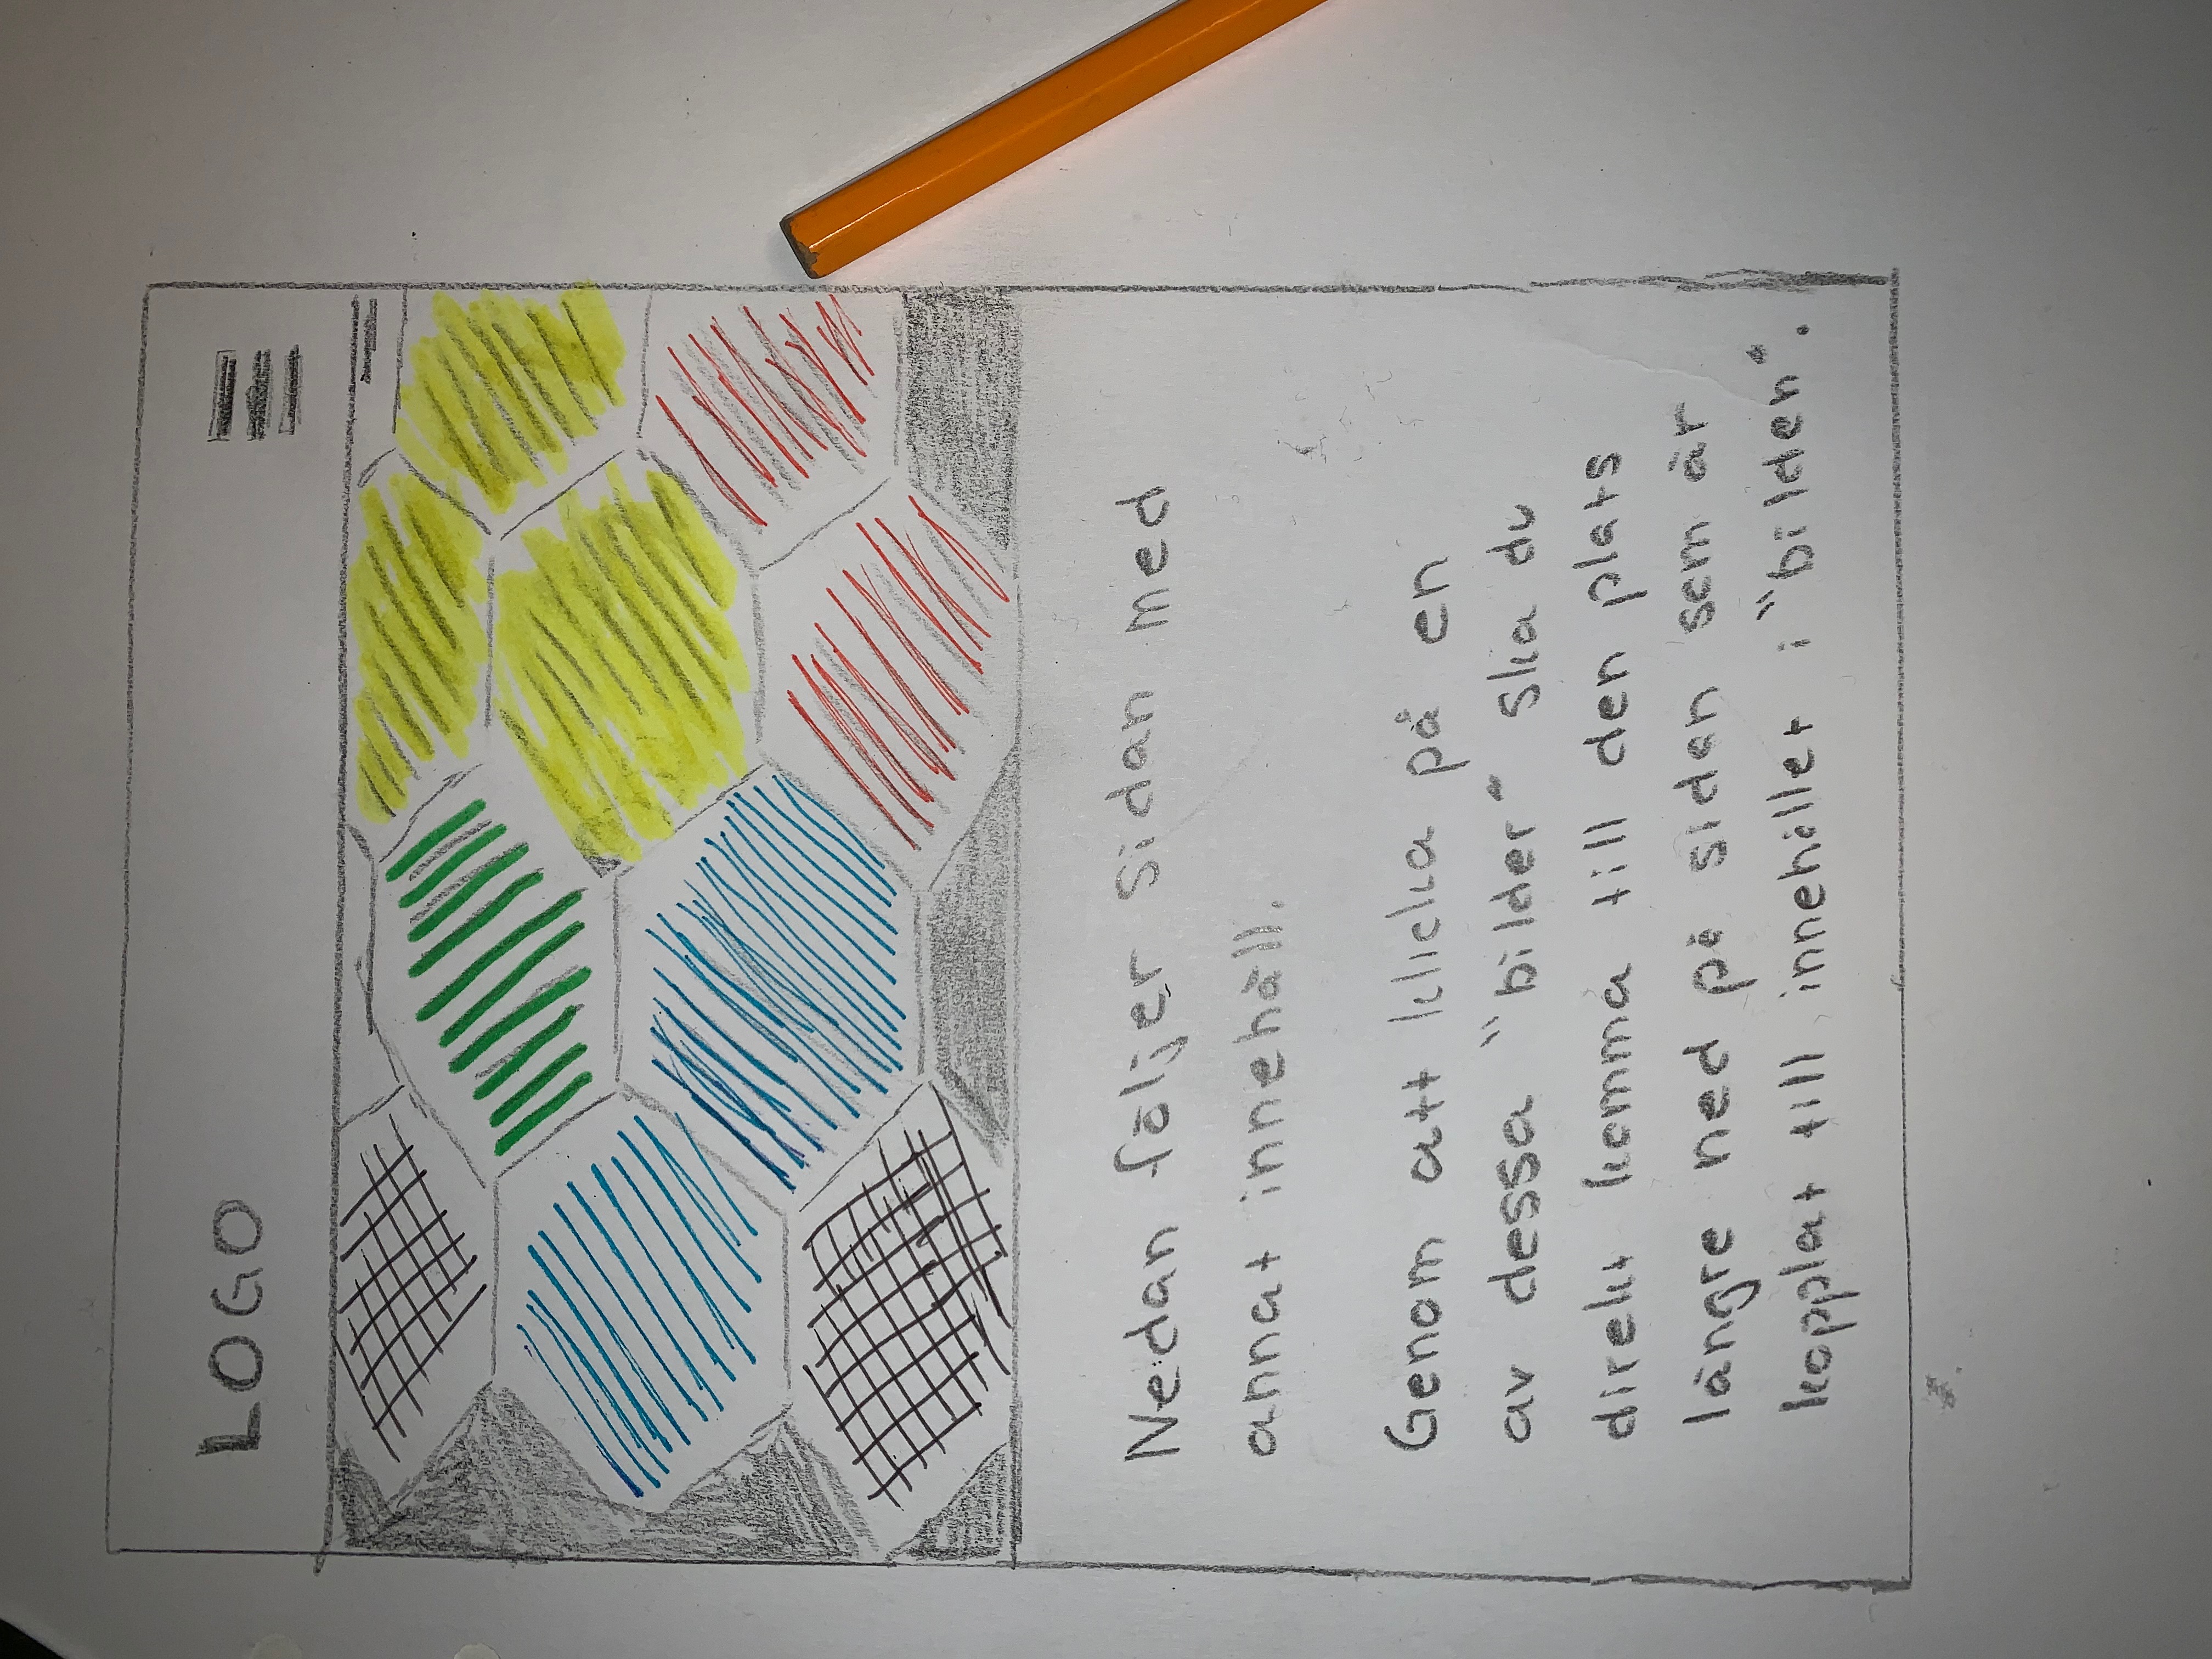 LOGO
Nedan följer sidan med
annat innehåll.
Genom att klicka på en
av dessa "bilder" ska du
direkt komma till den plats
längre ned på sidan som är
kopplat till innehållet i "bilden".